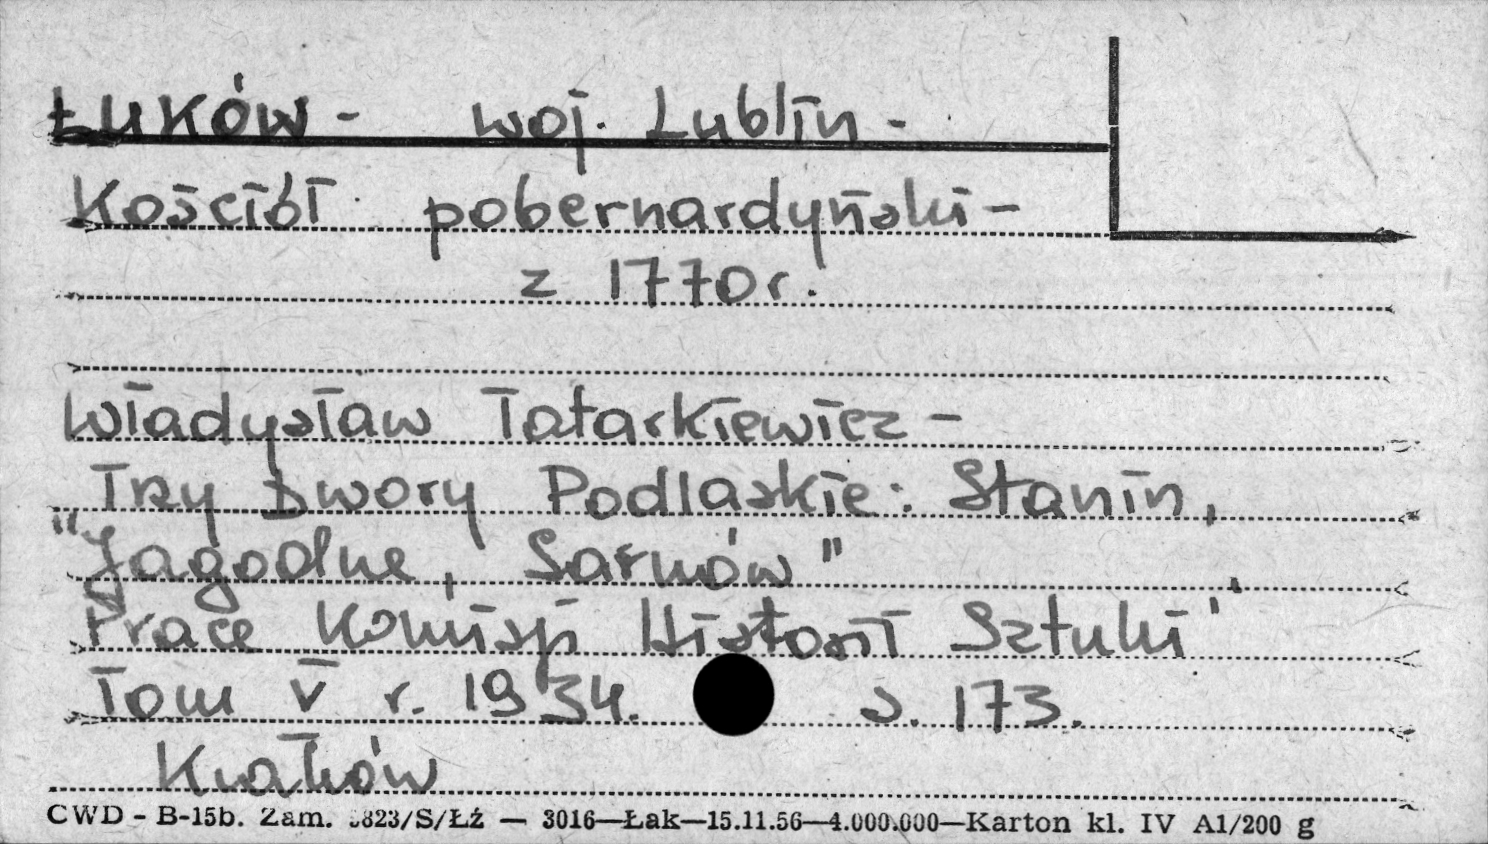 ŁUKÓW - woj. Lublin -
Kościół pobernardyński -
z 1770 r.
Władysław Tatarkiewicz -
Trzy Dwory Podlaskie: Stanin,
"Jagodne, Sarnów"
Prace Komisji Historii Sztuki"
Tom V r. 1934. s. 173.
Kraków
CWD - B-15b. Zam. 823/S/Łź — 3016—Łak—15.11.56—4.000.000—Karton kl. IV A1/200 g